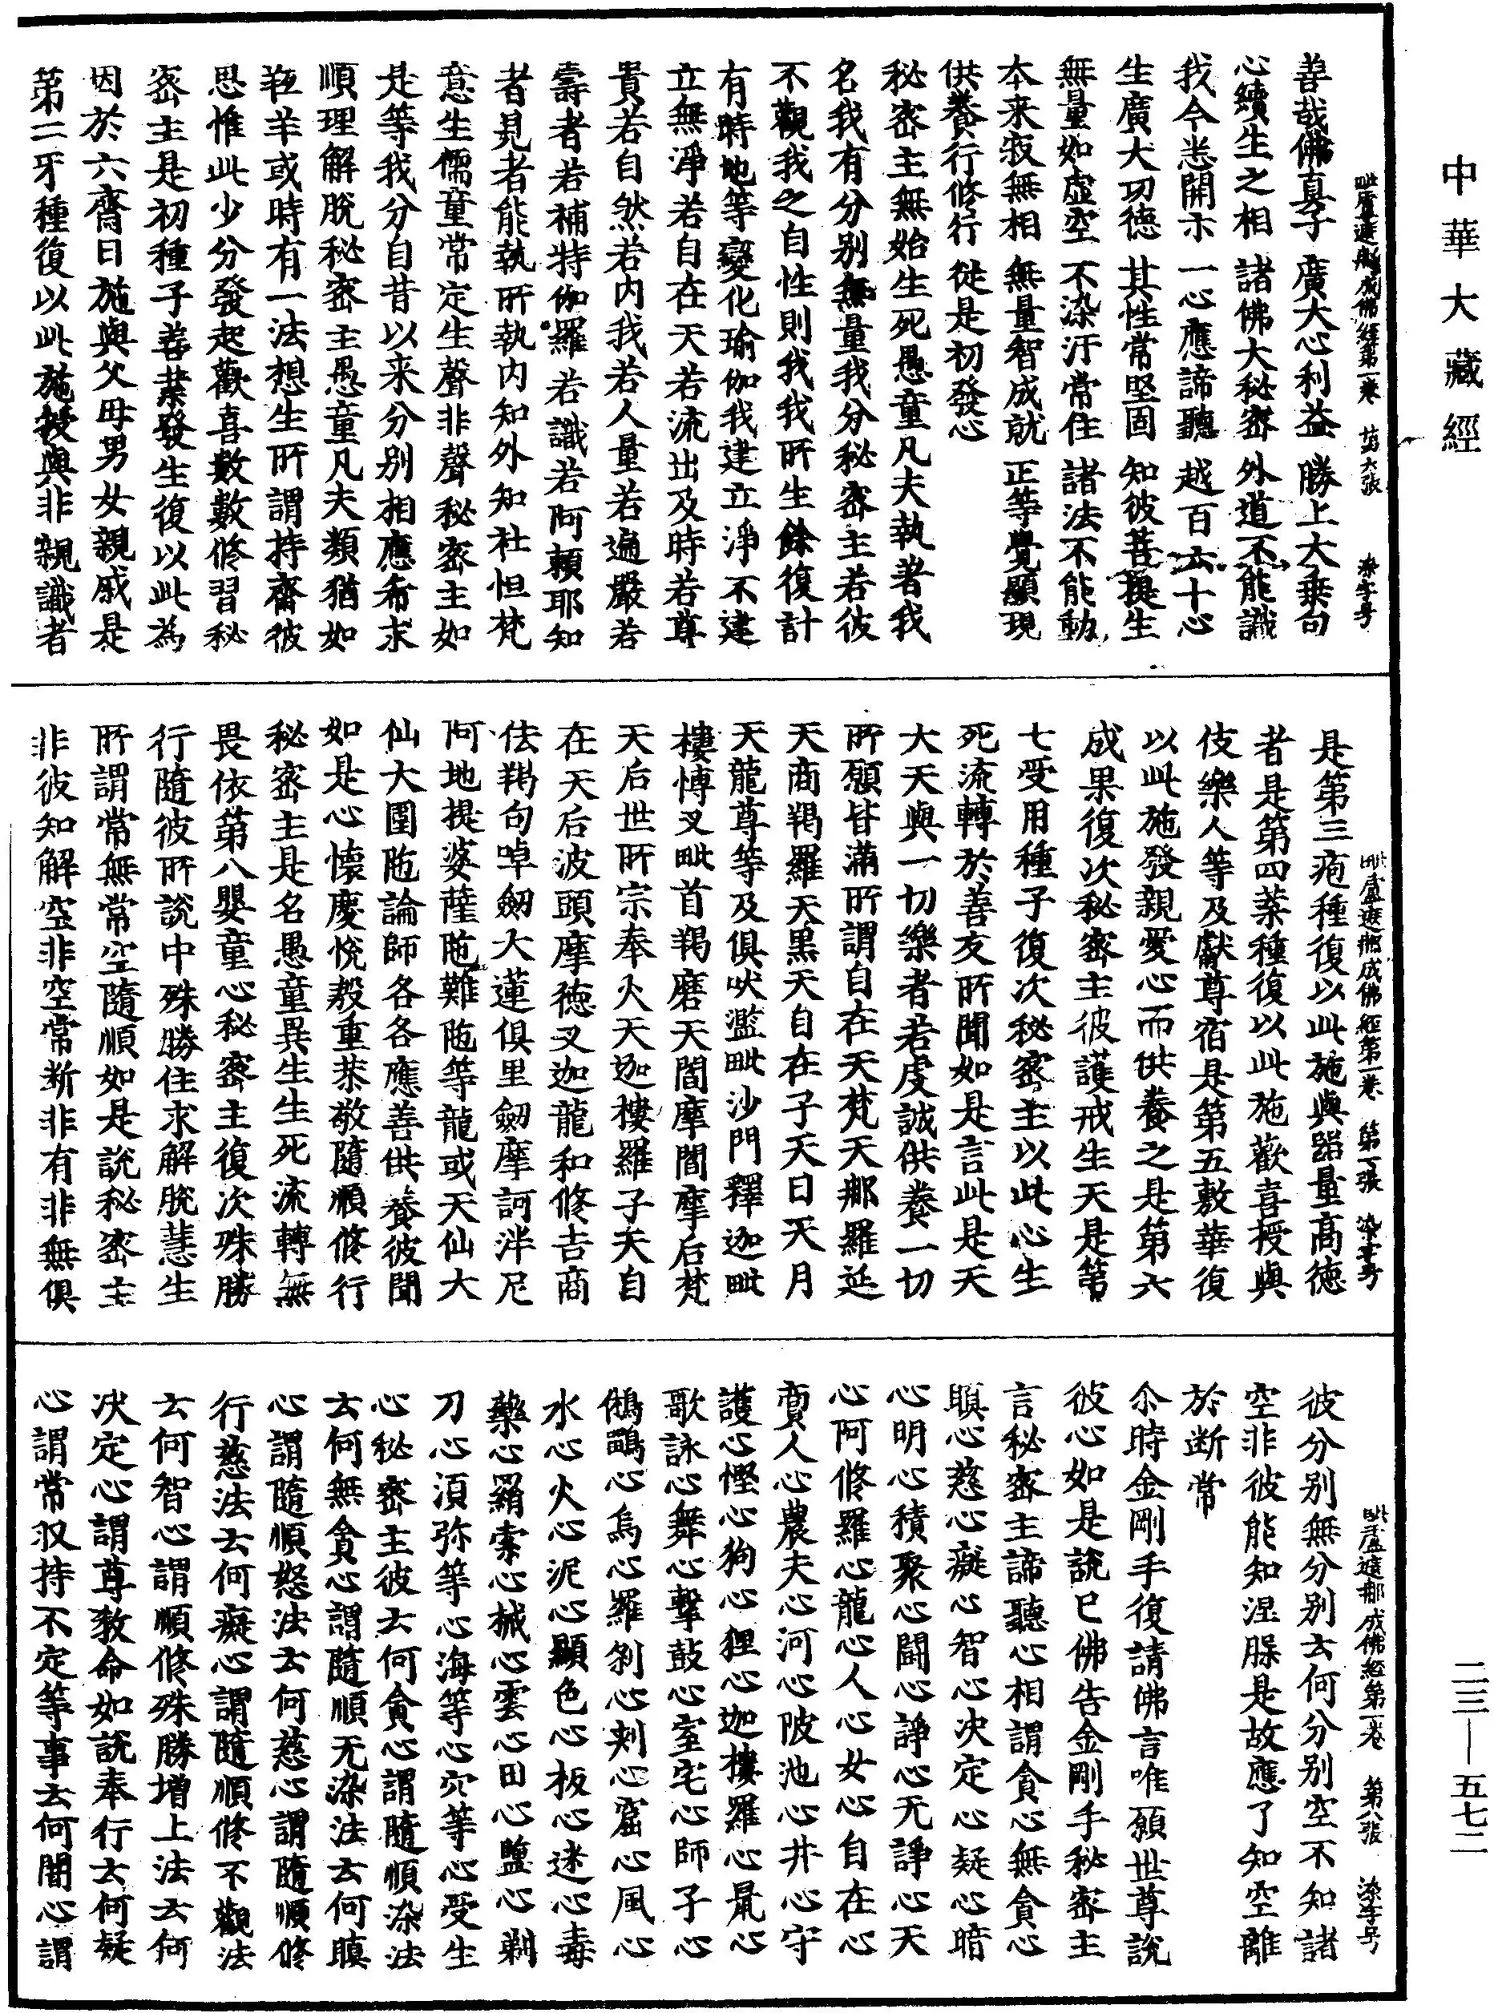 中華大藏經
毗盧遮那成佛經第一卷 第六張 染字号
善哉佛真子 廣大心利益 勝上大乘句
心續生之相 諸佛大秘密 外道不能識
我今悉開示 一心應諦聽 越百六十心
生廣大功德 其性常堅固 知彼菩提生
無量如虛空 不染汙常住 諸法不能動
本来寂無相 無量智成就 正等覺顯現
供養行修行 從是初發心
秘密主無始生死愚童凡夫執著我
名我有分別無量我分秘密主若彼
不觀我之自性則我我所生餘復計
有時地等變化瑜伽我建立淨不建
立無淨若自在天若流出及時若尊
貴若自然若内我若人量若遍嚴若
壽者若補特伽羅若識若阿賴耶知
者見者能執所執内知外知社怛梵
意生儒童常定生聲非聲秘密主如
是等我分自昔以来分別相應希求
順理解脫秘密主愚童凡夫類猶如
羝羊或時有一法想生所謂持齋彼
思惟此少分發起歡喜數數修習秘
密主是初種子善業發生復以此為
因於六齋日施與父母男女親戚是
第二牙種復以此施授與非親識者
毗盧遮那成佛經第一卷 第七張 染字号
是第三疱種復以此施與器量高德
者是第四葉種復以此施歡喜授與
伎樂人等及獻尊宿是第五敷華復
以此施發親愛心而供養之是第六
成果復次秘密主彼護戒生天是第
七受用種子復次秘密主以此心生
死流轉於善友所聞如是言此是天
大天與一切樂者若虔誠供養一切
所願皆滿所謂自在天梵天那羅延
天商羯羅天黑天自在子天日天月
天龍尊等及俱吠濫毗沙門釋迦毗
樓博叉毗首羯磨天閻摩閻摩后梵
天后世所宗奉火天迦樓羅子天自
在天后波頭摩德叉迦龍和修吉商
佉羯句啅劒大蓮俱里劒摩訶泮尼
阿地提婆薩陁難陁等龍或天仙大
仙大圍陁論師各各應善供養彼聞
如是心懷慶悅殷重恭敬隨順修行
秘密主是名愚童異生生死流轉無
畏依第八嬰童心秘密主復次殊勝
行隨彼所說中殊勝住求解脫慧生
所謂常無常空隨順如是說秘密主
非彼知解空非空常断非有非無俱
毗盧遮那成佛經第一卷 第八張 染字号
彼分別無分別云何分別空不知諸
空非彼能知涅槃是故應了知空離
於断常
尒時金剛手復請佛言唯願世尊說
彼心如是說已佛告金剛手秘密主
言秘密主諦聽心相謂貪心無貪心
瞋心慈心癡心智心决定心疑心暗
心明心積聚心鬭心諍心无諍心天
心阿修羅心龍心人心女心自在心
賣人心農夫心河心陂池心井心守
護心慳心狗心狸心迦樓羅心鼠心
歌詠心舞心擊鼓心室宅心師子心
鵂鶹心烏心羅剎心刺心窟心風心
水心火心泥心顯色心板心迷心毒
藥心羂索心械心雲心田心鹽心剃
刀心湏弥等心海等心穴等心受生
心秘密主彼云何貪心謂隨順染法
云何無貪心謂隨順无染法云何瞋
心謂隨順怒法云何慈心謂隨順修
行慈法云何癡心謂隨順修不觀法
云何智心謂順修殊勝增上法云何
决定心謂尊教命如說奉行云何疑
心謂常収持不定等事云何闇心謂
二三—五七二